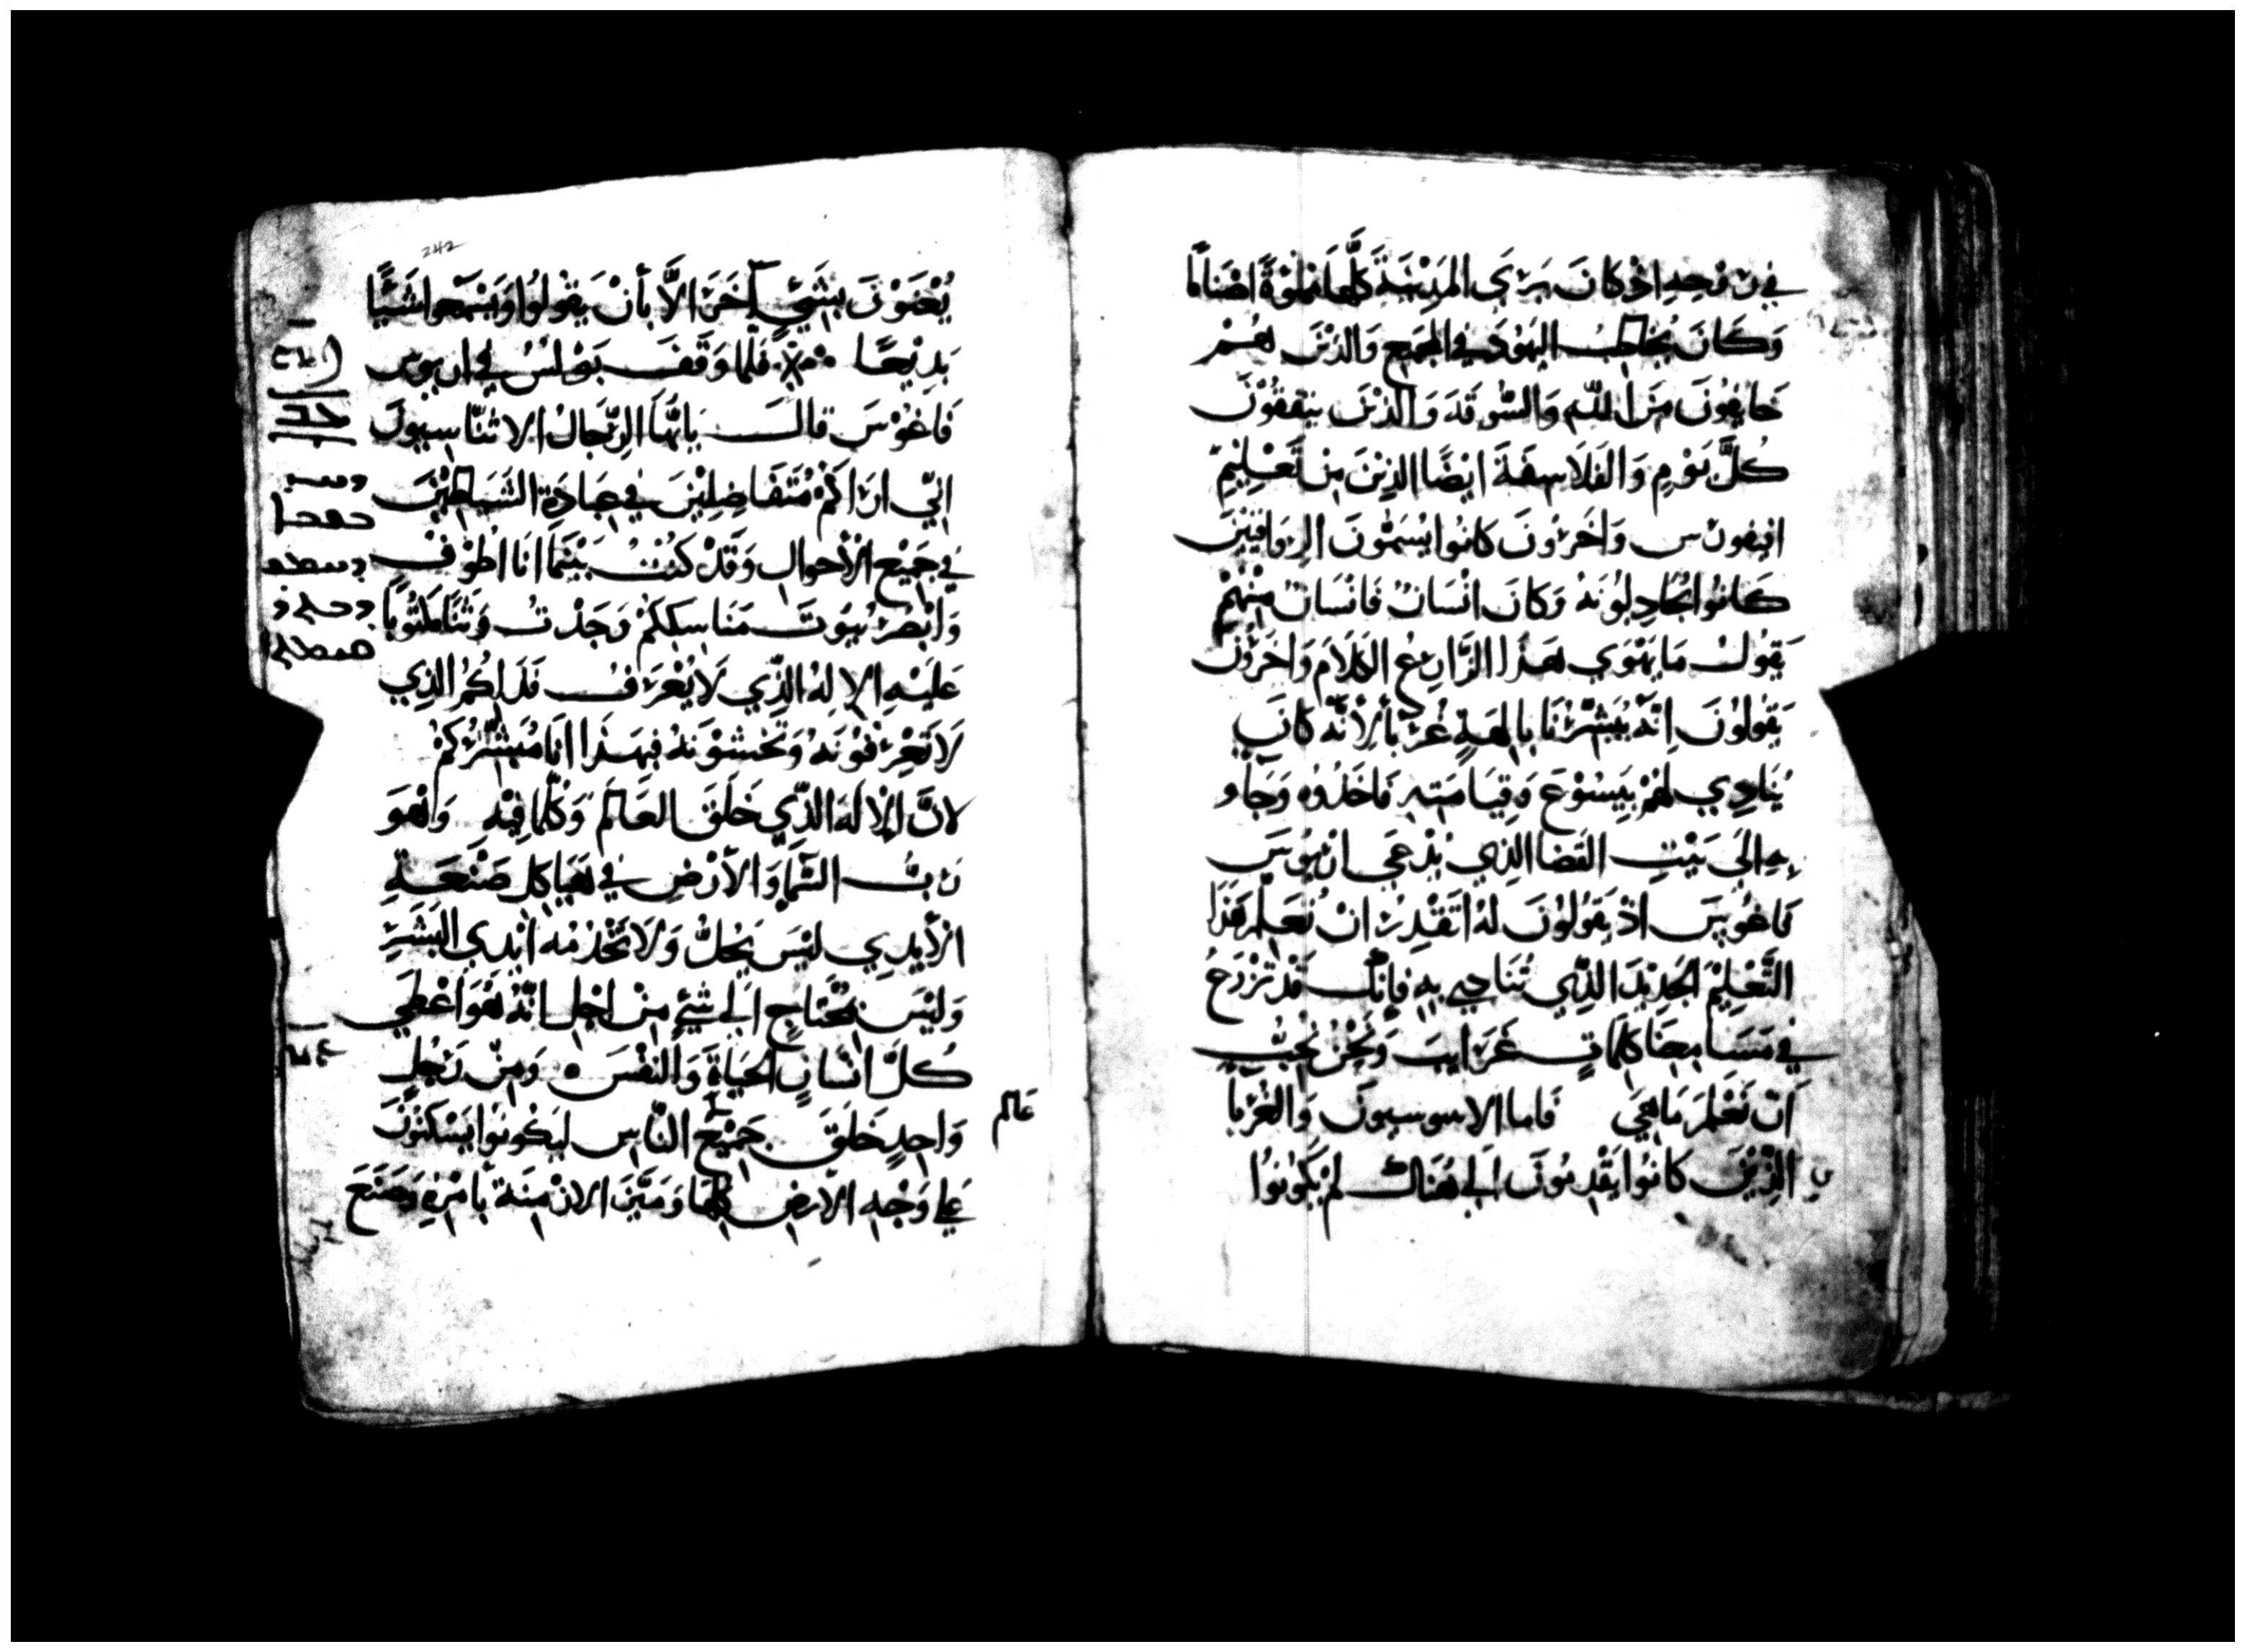 في روحه اذ كان يرى المدينة كلها مملوة اصناما
وكان يخاطب اليهود في المجمع والذين هم
خايفون من الله والسوقة والذين يتفقون
كل يوم والفلاسفة ايضا الذين من تعليم
افيقورس واخرون كانوا يسمون الرواقيين
كانوا يجادلونه وكان انسان فانسان منهم
يقول ما يهوي هذا الزارع الكلام واخرون
يقولون انه يبشرنا بالهة غربا لانه كان
ينادي لهم بيسوع وقيامته فاخذوه وجاو
به الى بيت القضا الذي يدعى اريوس
فاغوس اذ يقولون له اتقدر ان نعلم هذا
التعليم الجديد الذي تنادي به فانك قد تزرع
في مسامعنا كلمات غرايب ونحن نحب
ان نعلم ما هي فاما الاسوسيون والغربا
الذين كانوا يقدمون الى هناك لم يكونوا
242
يعنون بشي آخر الا بان يقولوا ويسمعوا شيا
بديعا فلما وقف بولس في اريوس
فاغوس قال يا ايها الرجال الاثناسيون
اني اراكم متفاضلين في عبادة الشياطين
في جميع الاحوال وقد كنت بينما انا اطوف
وابصر بيوت مناسككم وجدت وثنا مكتوبا
عليه الاله الذي لا يعرف فذلكم الذي
لا تعرفونه وتخشونه فبهذا انا مبشركم
لان الاله الذي خلق العالم وكلما فيه وهو
رب السما والارض في هياكل صنعة
الايدي ليس يحل ولا تخدمه ايدي البشر
وليس يحتاج الى شي من اجل انه هو اعطى
كل انسان الحياة والنفس ومن رجل
واحد خلق جميع الناس ليكونوا يسكنون
عالم
على وجه الارض كلها وميز الازمنة بامره وصنع